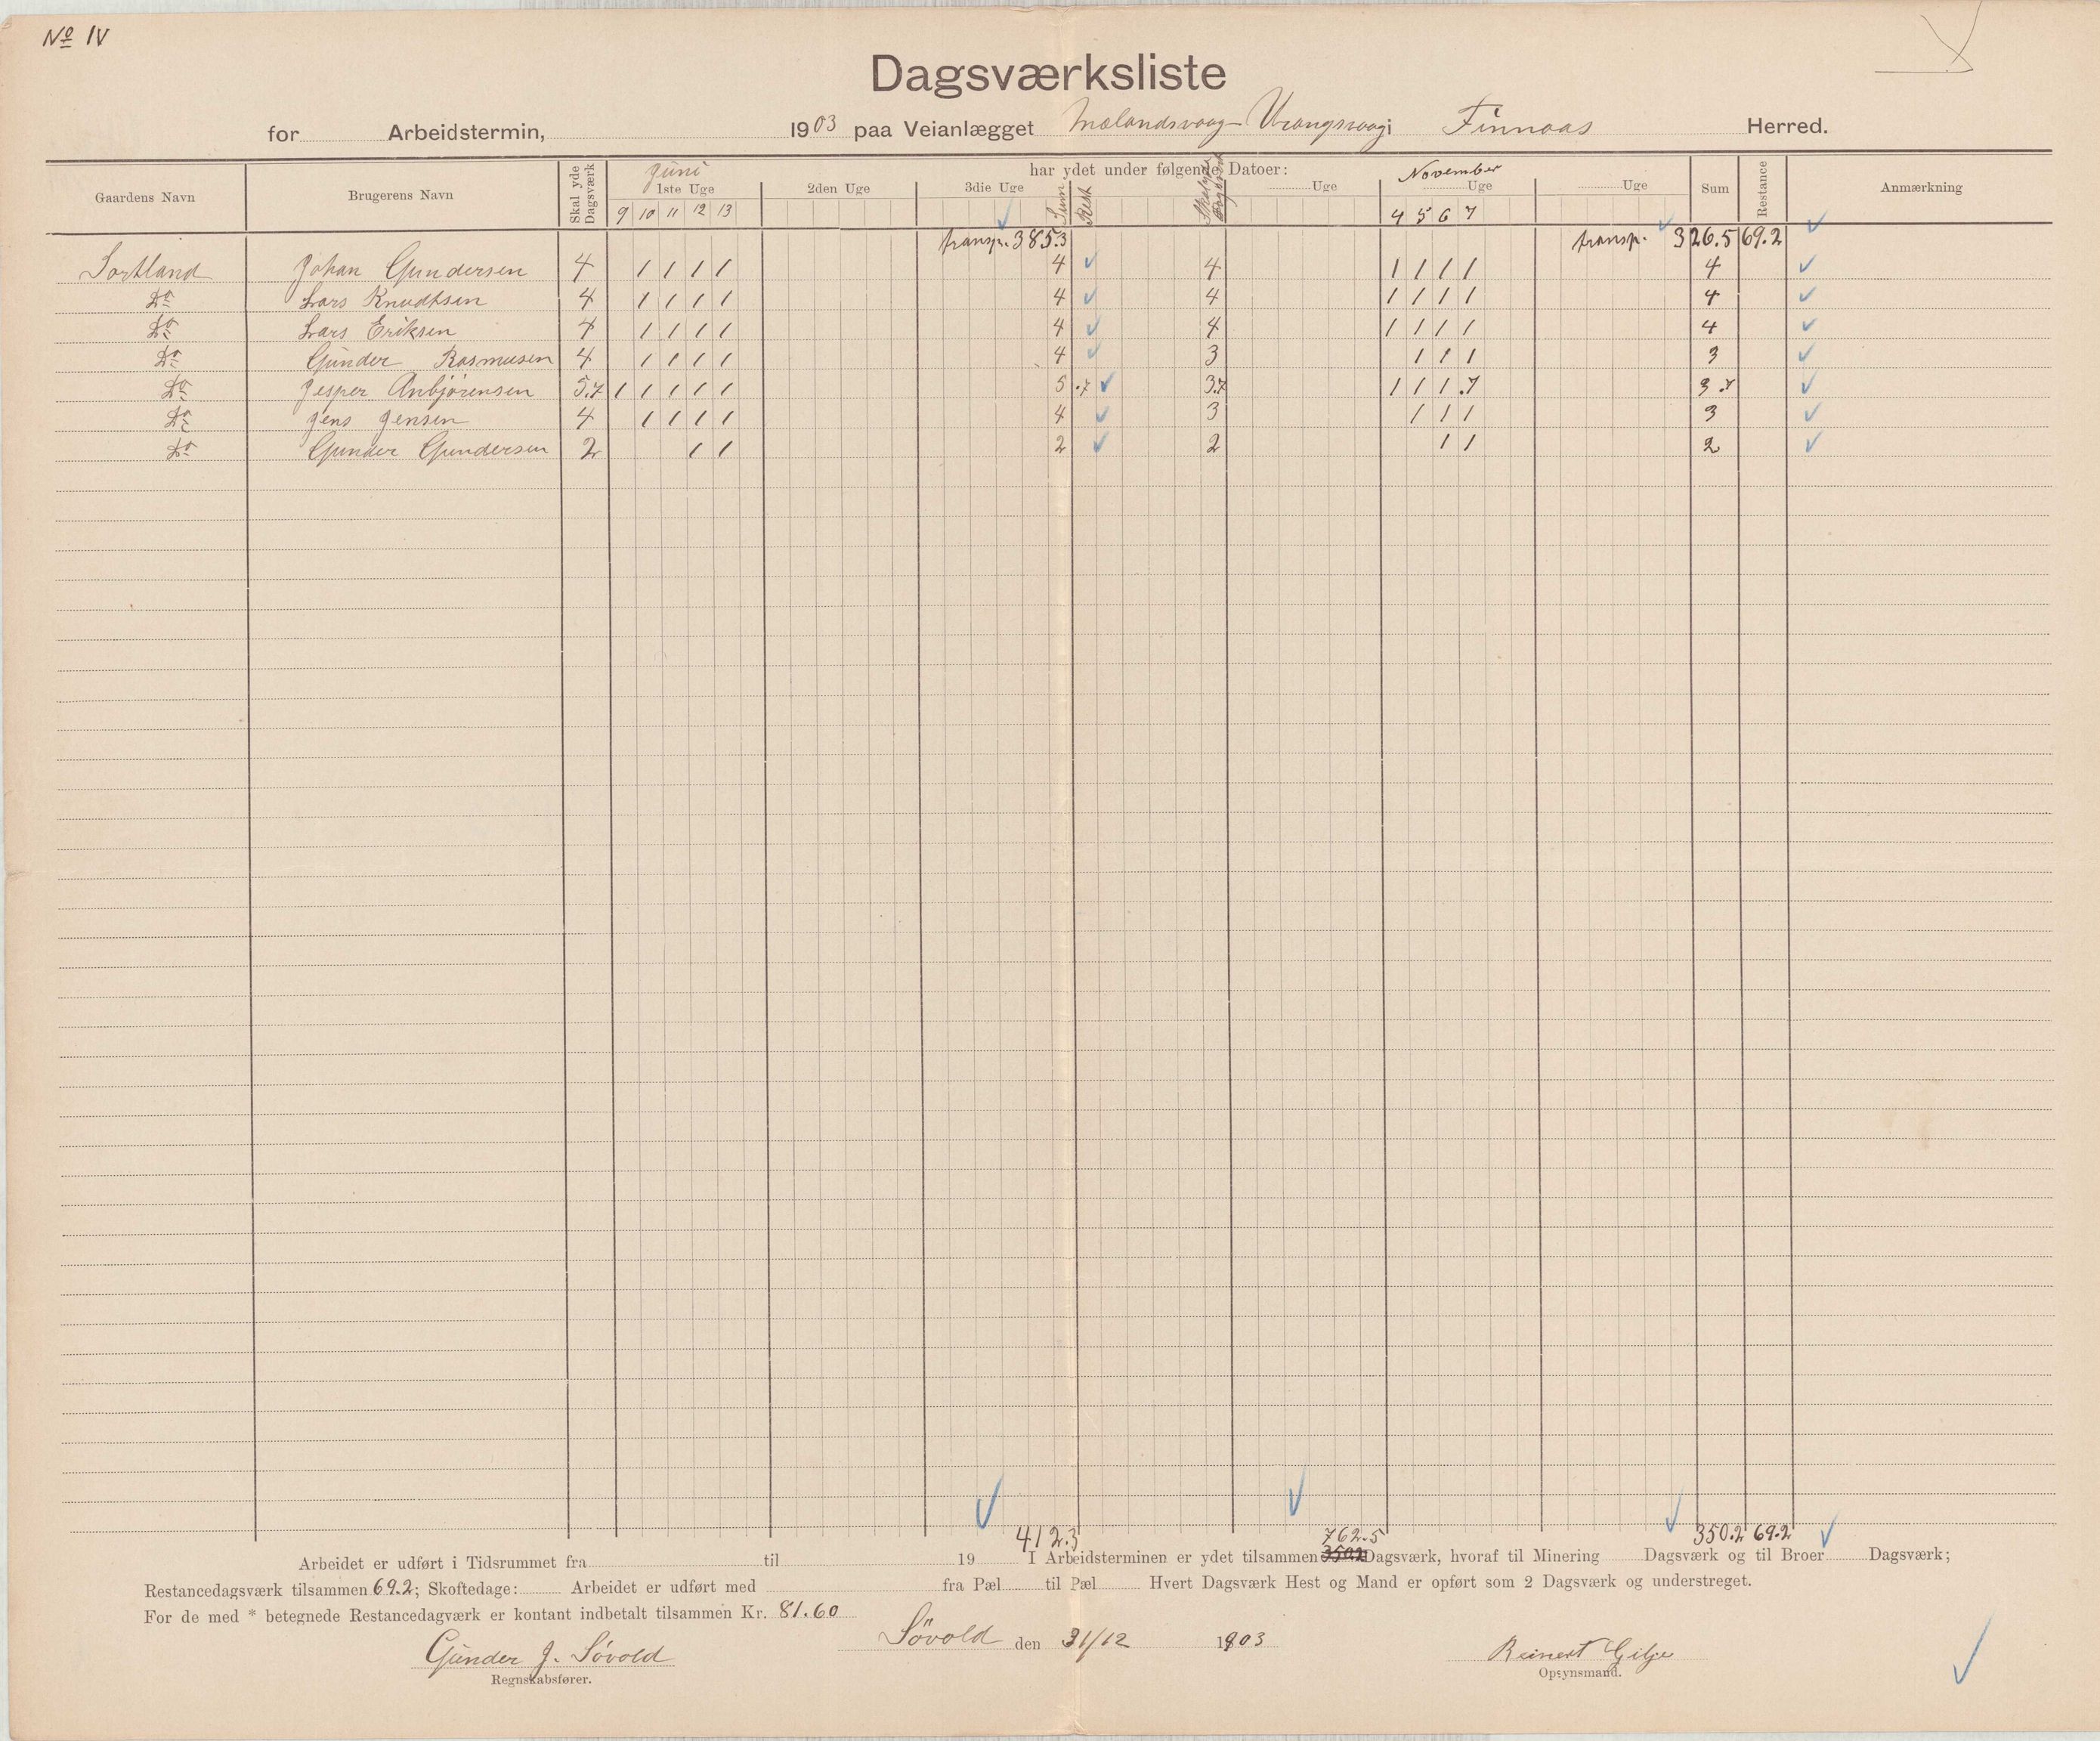 No IV
Dagsværksliste
for Arbeidstermin, 1903 paa Veianlægget Mælandsvaag-Vrangsvaag i Finnaas Herred.
Gaardens Navn Brugerens Navn Skal yde Dagsværk har ydet under følgende Datoer: Sum Restance Anmærkning
Juni 1ste Uge 2den Uge 3die Uge Sum Rest Uge November Uge Uge
9 10 11 12 13 4 5 6 7
transp. 385.3 transp. 326.5 69.2
Sortland Johan Gundersen 4 1 1 1 1 4 4 1 1 1 1 4
Do Lars Knudtsen 4 1 1 1 1 4 4 1 1 1 1 4
Do Lars Eriksen 4 1 1 1 1 4 4 1 1 1 1 4
Do Gunder Rasmusen 4 1 1 1 1 4 3 1 1 1 3
Do Jesper Anbjørensen 5.7 1 1 1 1 1 5 .7 3.7 1 1 1 .7 3.7
Do Jens Jensen 4 1 1 1 1 4 3 1 1 1 3
Do Gunder Gundersen 2 1 1 2 2 1 1 2
412.3 762.5 350.2 69.2
Arbeidet er udført i Tidsrummet fra til 19 I Arbeidsterminen er ydet tilsammen 350.2 Dagsværk, hvoraf til Minering Dagsværk og til Broer Dagsværk;
Restancedagsværk tilsammen 69.2; Skoftedage: Arbeidet er udført med fra Pæl til Pæl Hvert Dagsværk Hest og Mand er opført som 2 Dagsværk og understreget.
For de med * betegnede Restancedagværk er kontant indbetalt tilsammen Kr. 81.60
Søvold den 31/12 1903
Gunder J. Søvold Reinert Gilje
Regnskabsfører. Opsynsmand.